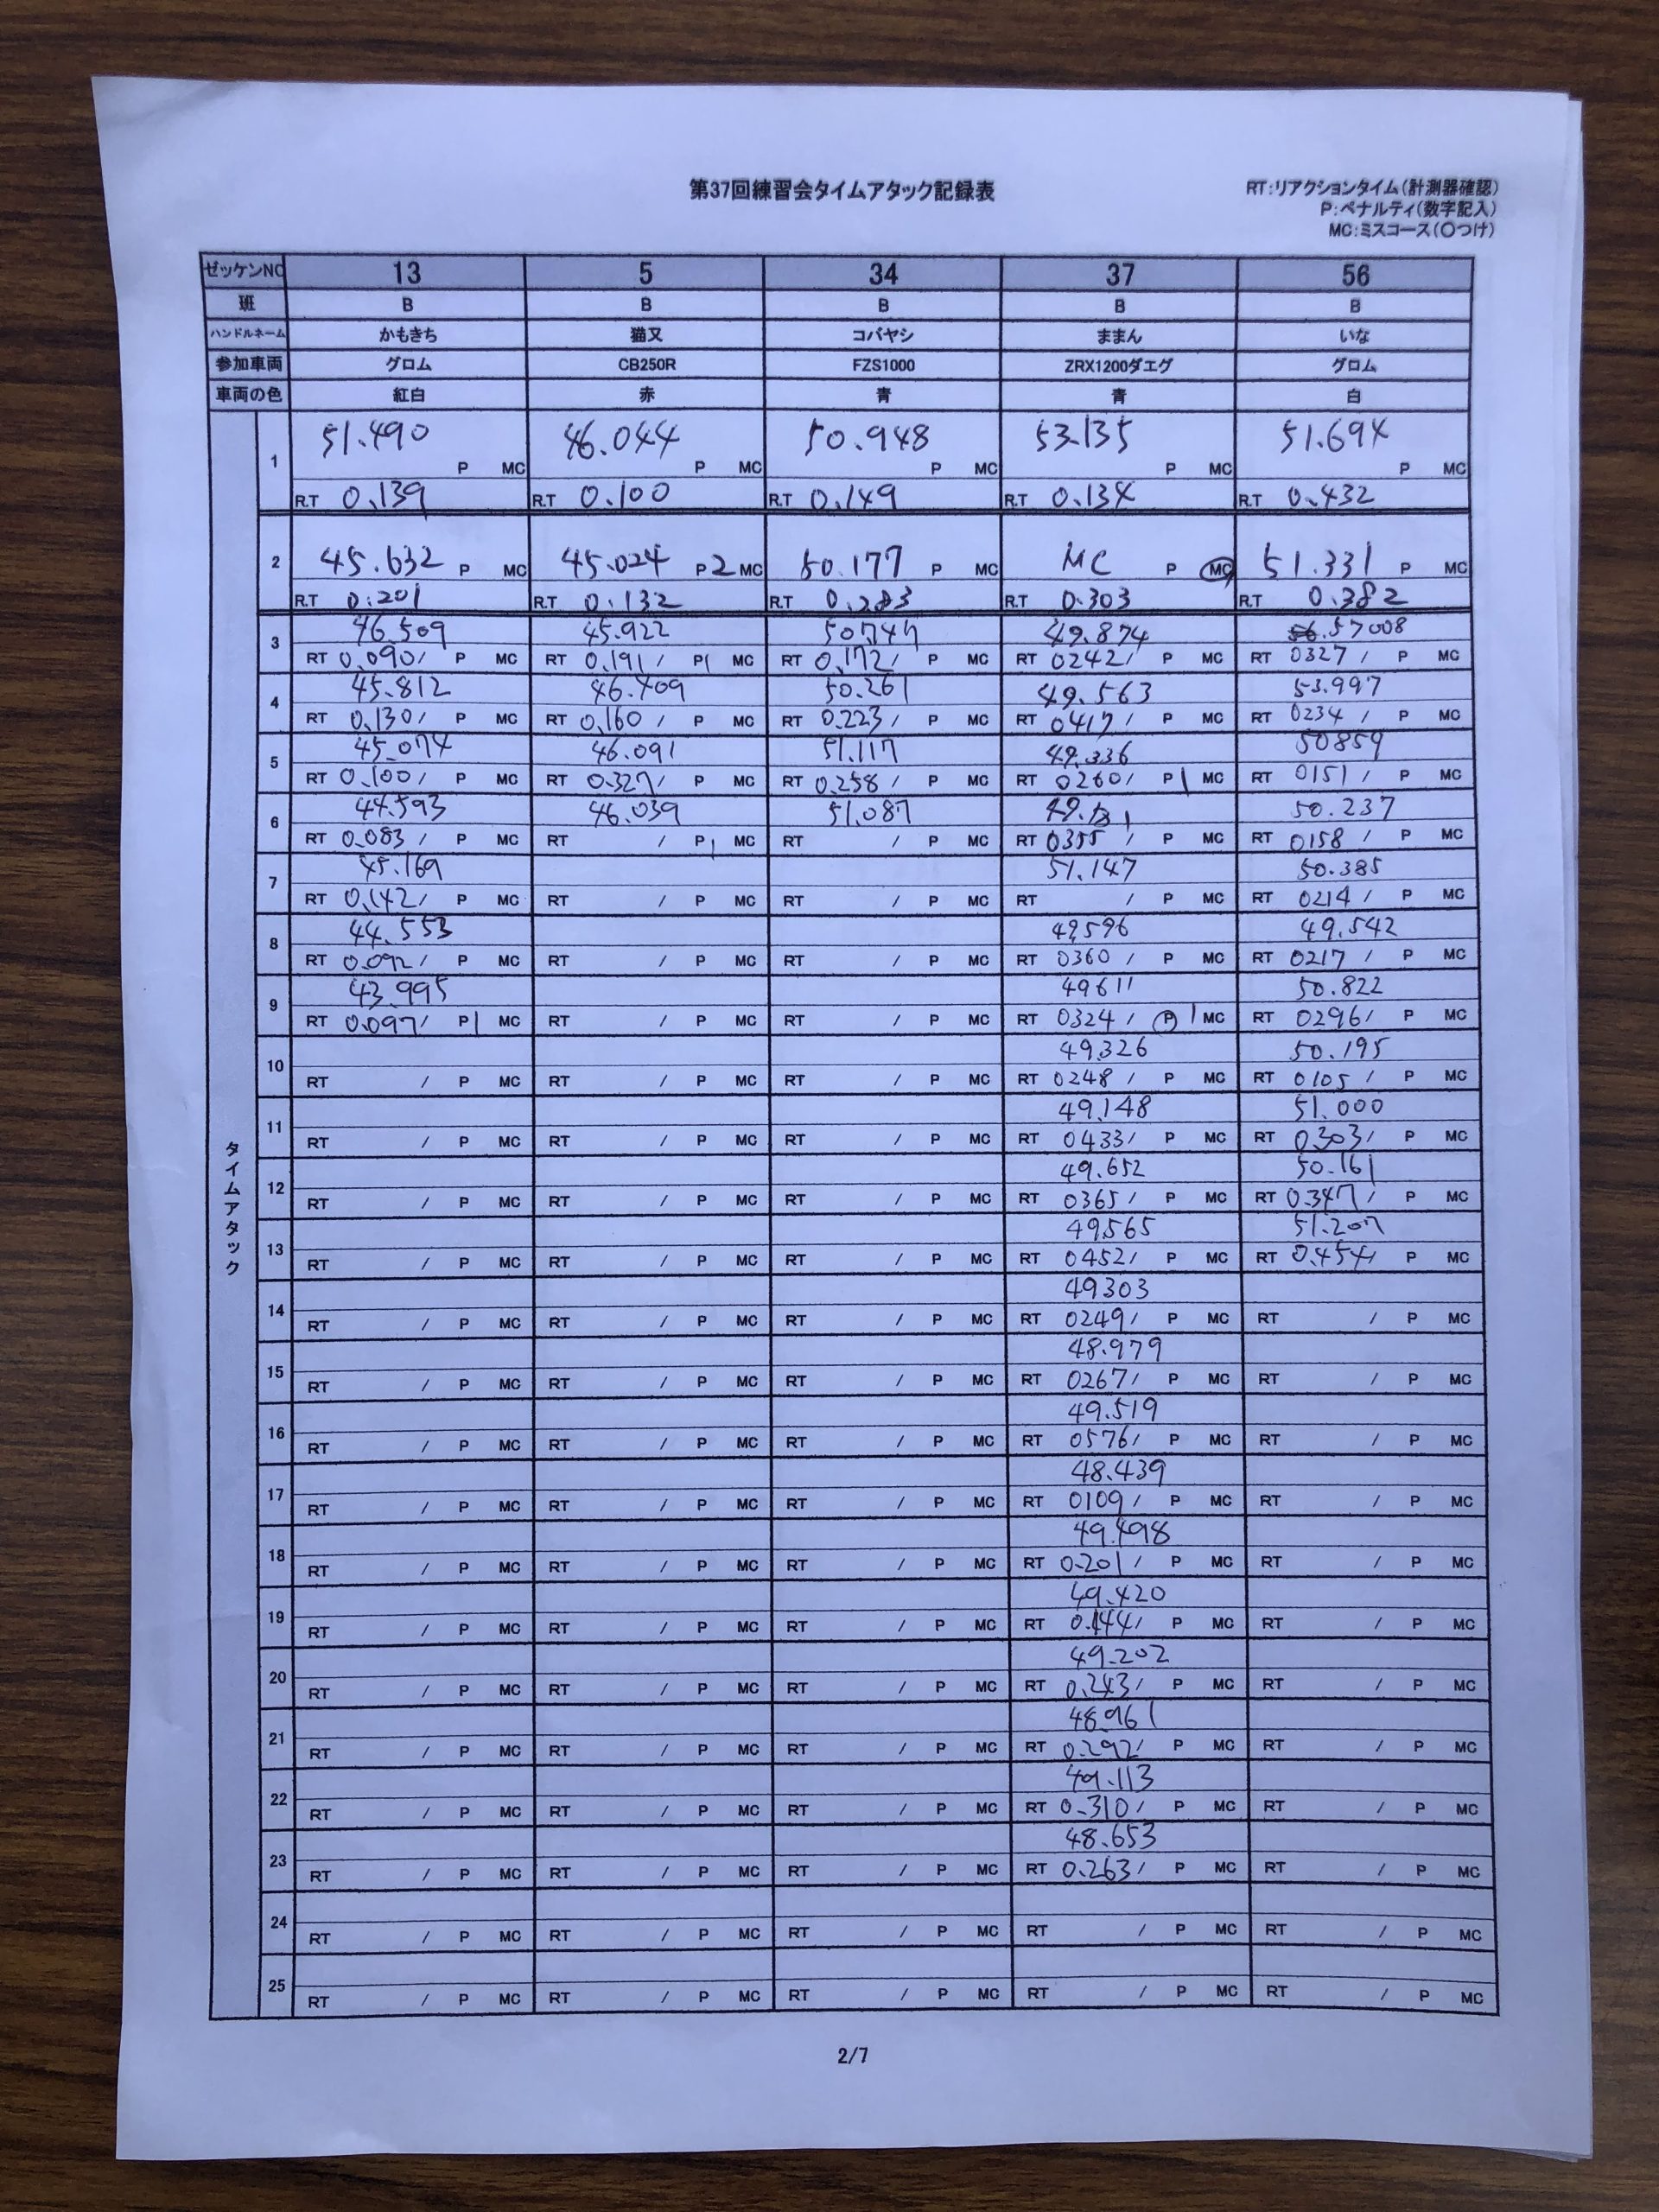 第37回練習会タイムアタック記録表
RT:リアクションタイム(計測器確認)
P:ペナルティ(数字記入)
MC:ミスコース(〇つけ)
ゼッケンNO 13 5 34 37 56
班 B B B B B
ハンドルネーム かもきち 猫又 コバヤシ ままん いな
参加車両 グロム CB250R FZS1000 ZRX1200ダエグ グロム
車両の色 紅白 赤 青 青 白
タイムアタック
51.490 46.044 50.948 53.135 51.694
1 P MC P MC P MC P MC P MC
R.T 0.139 R.T 0.100 R.T 0.149 R.T 0.134 R.T 0.432
2 45.632 P MC 45.024 P2 MC 50.177 P MC MC P MC 51.331 P MC
R.T 0.201 R.T 0.132 R.T 0.283 R.T 0.303 R.T 0.382
3 46.509 45.922 50.747 49.874 57008
RT 0.090/ P MC RT 0.191/ P1 MC RT 0.172/ P MC RT 0242/ P MC RT 0327/ P MC
4 45.812 46.409 50.261 49.563 53.997
RT 0.130/ P MC RT 0.160/ P MC RT 0.223/ P MC RT 0417/ P MC RT 0234/ P MC
5 45.074 46.091 51.117 49.336 50859
RT 0.100/ P MC RT 0.327/ P MC RT 0.258/ P MC RT 0260/ P1 MC RT 0151/ P MC
6 44.593 46.039 51.087 50.237
RT 0.083/ P MC RT / P1 MC RT / P MC RT 0355/ P MC RT 0158/ P MC
7 45.169 51.147 50.385
RT 0.142/ P MC RT / P MC RT / P MC RT / P MC RT 0214/ P MC
8 44.553 49.596 49.542
RT 0.092/ P MC RT / P MC RT / P MC RT 0360/ P MC RT 0217/ P MC
9 43.995 49611 50.822
RT 0.097/ P1 MC RT / P MC RT / P MC RT 0324/ P1 MC RT 0296/ P MC
10 49.326 50.195
RT / P MC RT / P MC RT / P MC RT 0248/ P MC RT 0105/ P MC
11 49.148 51.000
RT / P MC RT / P MC RT / P MC RT 0433/ P MC RT 0.303/ P MC
12 49.652 50.161
RT / P MC RT / P MC RT / P MC RT 0365/ P MC RT 0.347/ P MC
13 49.565 51.207
RT / P MC RT / P MC RT / P MC RT 0452/ P MC RT 0.454/ P MC
14 49303
RT / P MC RT / P MC RT / P MC RT 0249/ P MC RT / P MC
15 48.979
RT / P MC RT / P MC RT / P MC RT 0267/ P MC RT / P MC
16 49.519
RT / P MC RT / P MC RT / P MC RT 0576/ P MC RT / P MC
17 48.439
RT / P MC RT / P MC RT / P MC RT 0109/ P MC RT / P MC
18 49.498
RT / P MC RT / P MC RT / P MC RT 0.201/ P MC RT / P MC
19 49.420
RT / P MC RT / P MC RT / P MC RT 0.144/ P MC RT / P MC
20 49.202
RT / P MC RT / P MC RT / P MC RT 0.243/ P MC RT / P MC
21 48.961
RT / P MC RT / P MC RT / P MC RT 0.292/ P MC RT / P MC
22 49.113
RT / P MC RT / P MC RT / P MC RT 0.310/ P MC RT / P MC
23 48.653
RT / P MC RT / P MC RT / P MC RT 0.263/ P MC RT / P MC
24
RT / P MC RT / P MC RT / P MC RT / P MC RT / P MC
25
RT / P MC RT / P MC RT / P MC RT / P MC RT / P MC
2/7